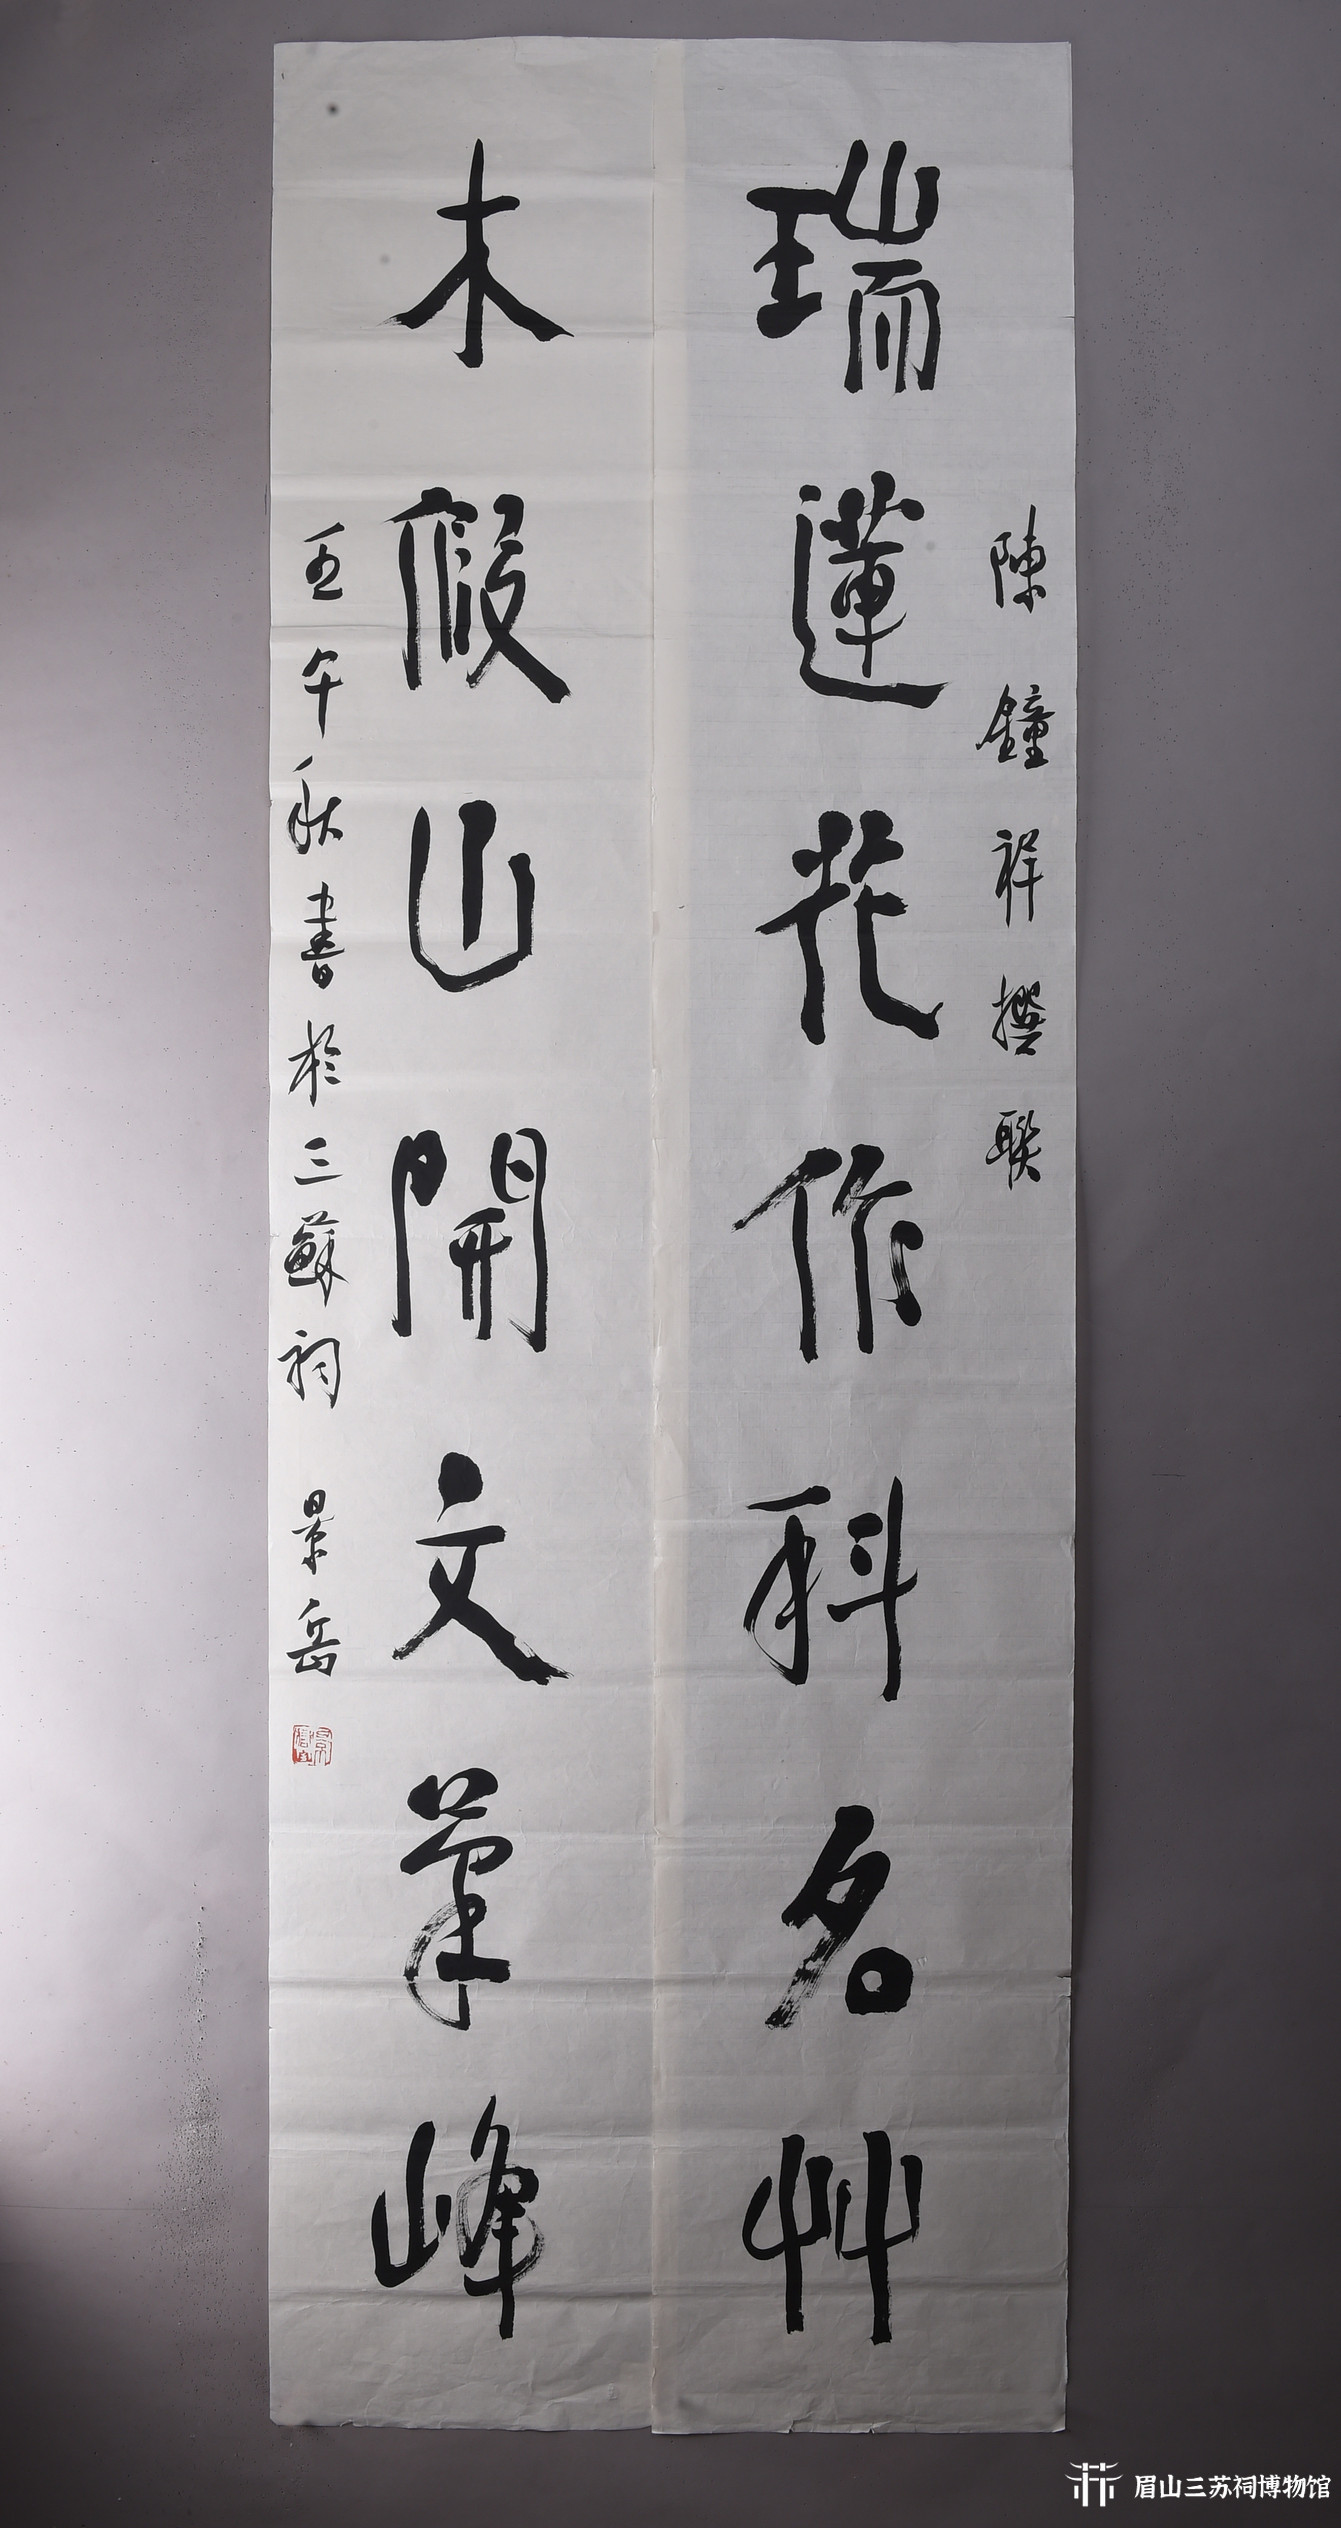 陳鐘祥撰聯
瑞蓮花作科名艸
木假山開文筆峰
壬午秋書於三蘇祠 景岳
眉山三苏祠博物馆